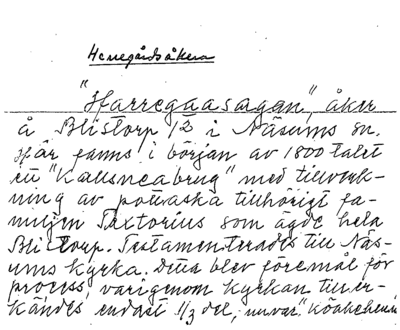 Herregårdsåkern
"Harregaasagan", åker
å Blistorp 1/2 i Näsums sn.
Här fanns i början av 1800 talet
ett "Kallsneabrug" med tillverk-
ning av pottaska tillhörigt fa-
miljen Sextorius som ägde hela
Blistorp. Testamenterades till Näs-
ums kyrka. Detta blev föremål för
process, varigenom kyrkan tiller-
kändes endast 1/3 del, nuvar.